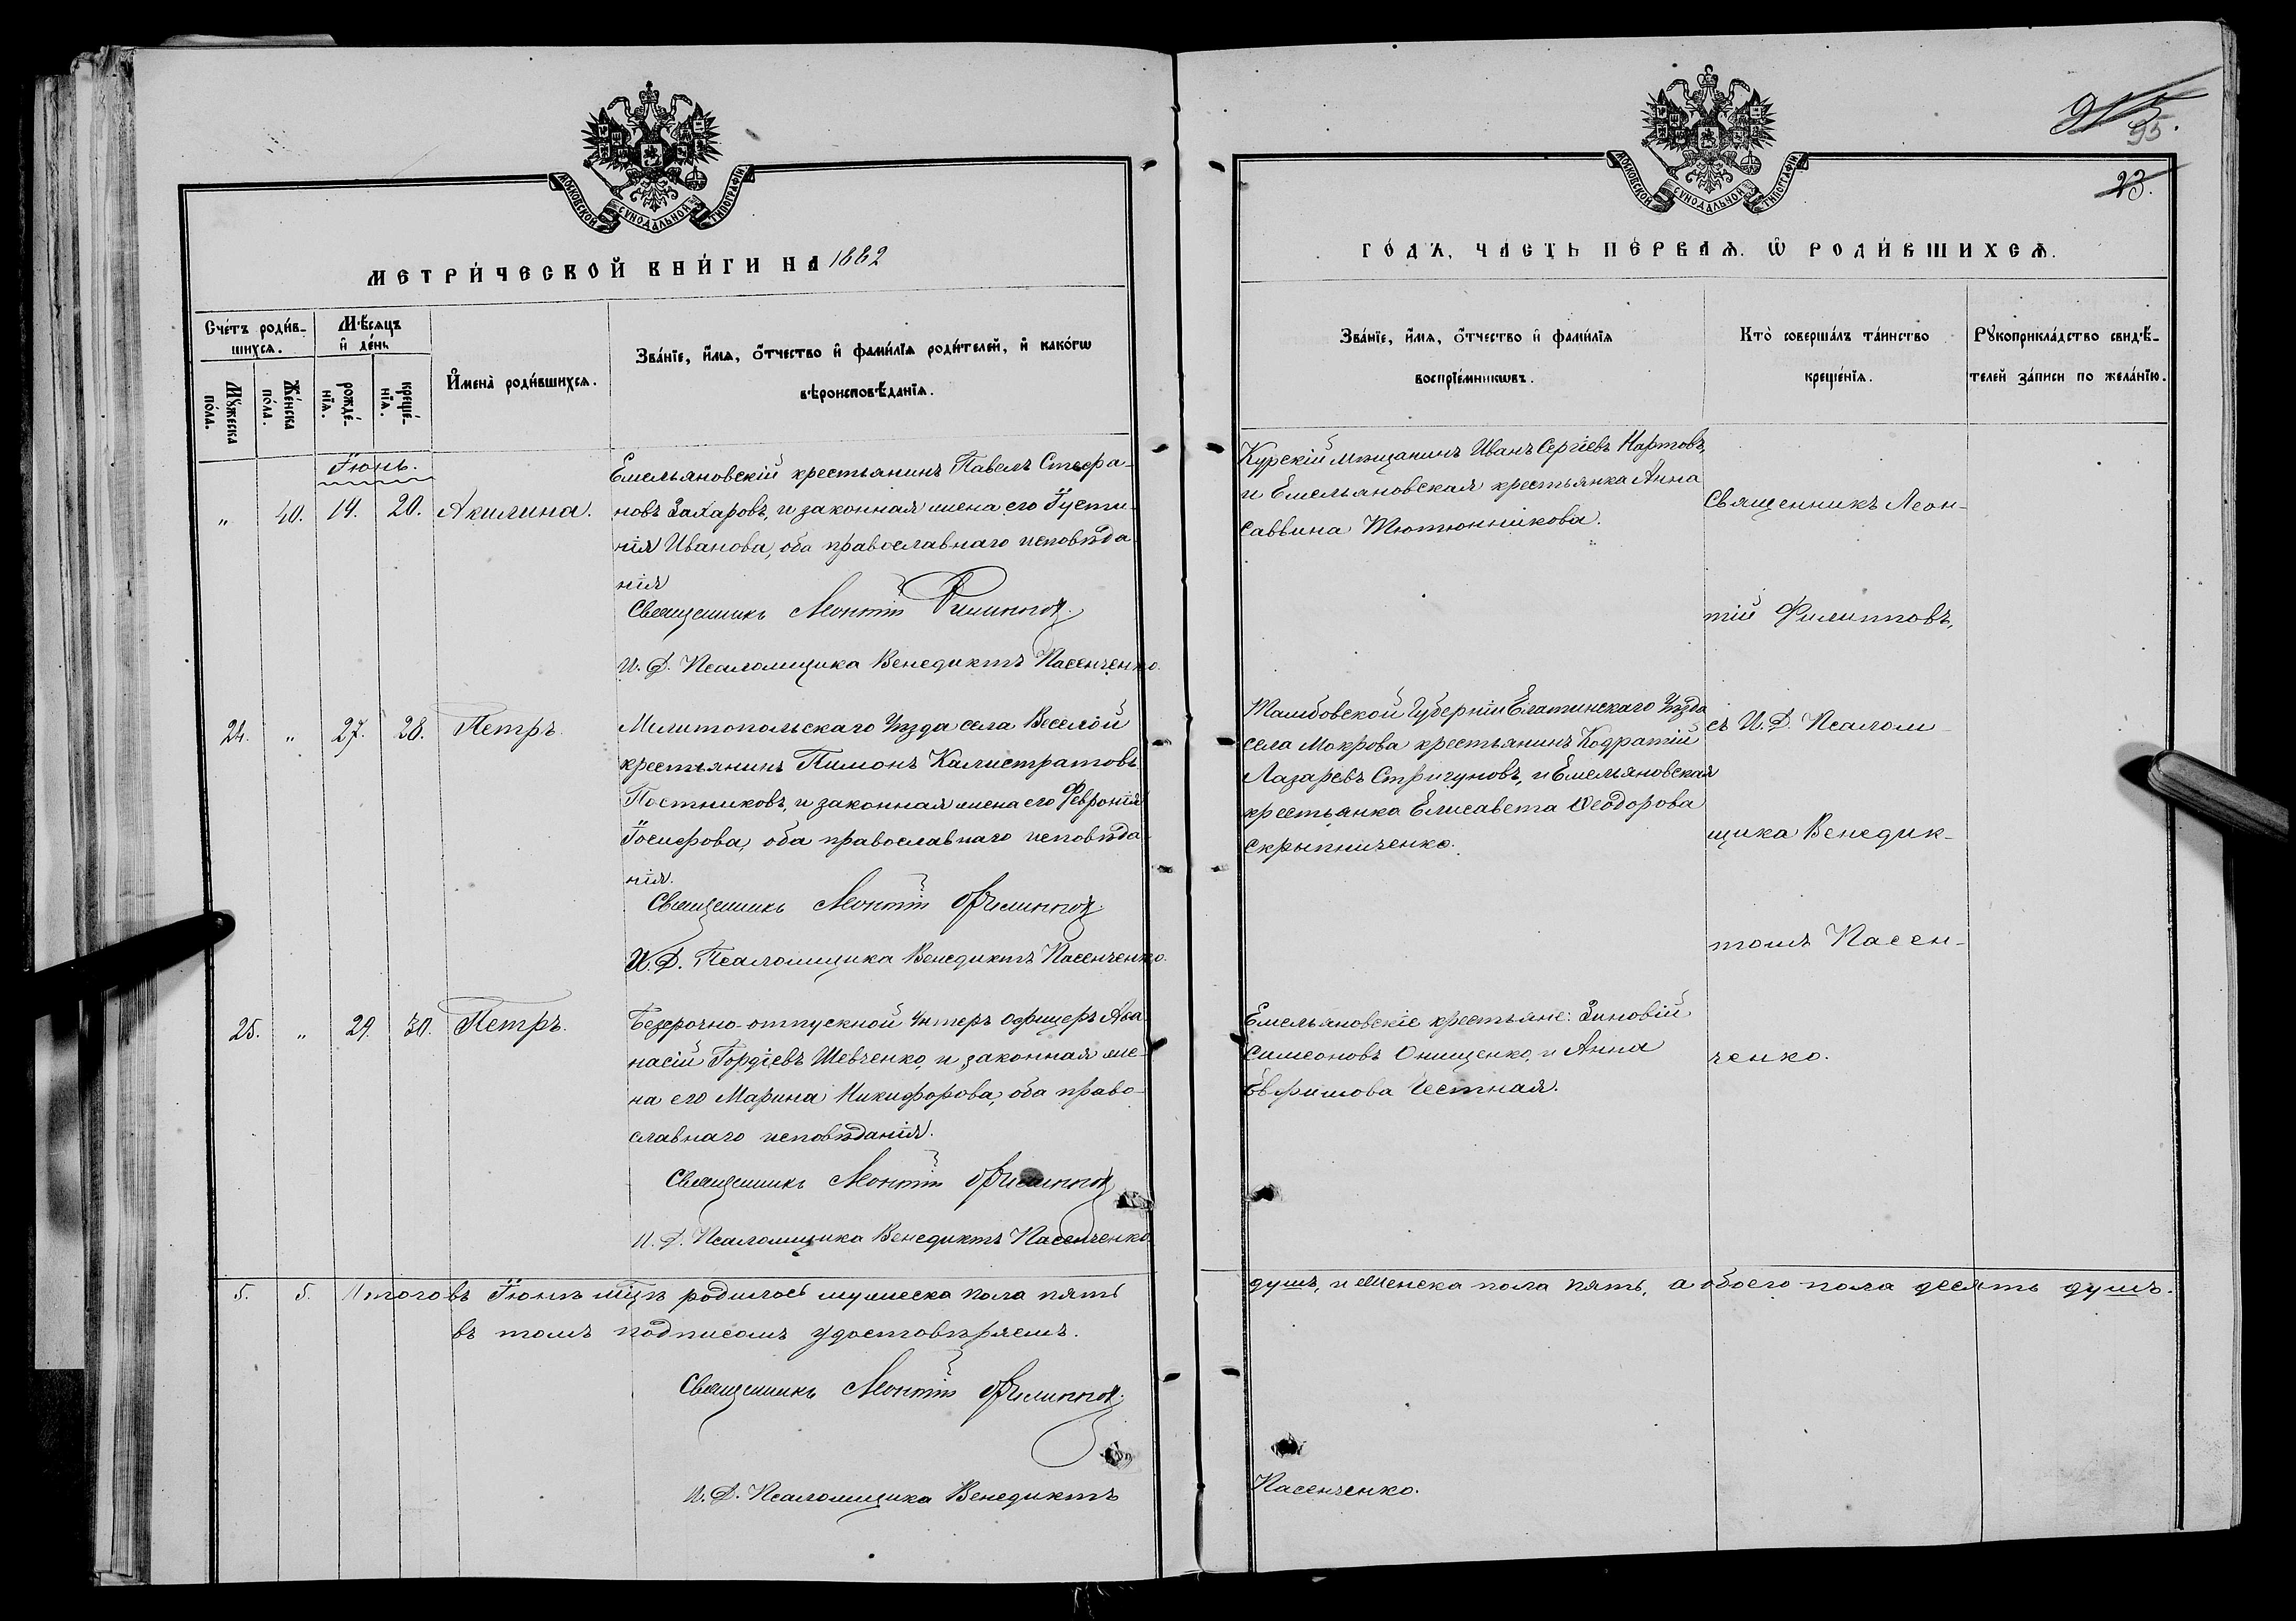 МОСКОВСКОЙ СУНОДАЛЬНОЙ ТИПОГРАФІИ
МЕТРИ́ЧЕСКОЙ КНИ́ГИ НА 1882
Сче́тъ роди́в-
шихсѧ.
Мѣ́сѧцъ
и҆ де́нь
Мꙋ́жеска
по́ла.
Же́нска
по́ла.
рожде́-
нїѧ.
креще́-
нїѧ.
И҆мена̀ роди́вшихсѧ.
Зва́нїе, и҆́мѧ, ѻ҆́тчество и҆ фами́лїѧ роди́телей, и҆ како́гѡ
вѣроисповѣ́данїѧ.
Іюнь.
„ 40. 14. 20. Акилина.
Емельяновскій крестьянинъ Павелъ Стефа-
новъ Захаровъ, и законная жена его Іусти-
нія Иванова, оба православнаго исповѣда-
нія
Священникъ Леонтій Филипповъ.
И. Д. Псаломщика Венедиктъ Пасенченко.
24. „ 27. 28. Петръ.
Мелитопольскаго Уѣзда села Веселой
крестьянинъ Пимонъ Калистратовъ
Постниковъ, и законная жена его Февронія
Іосифова, оба православнаго исповѣда-
нія.
Священникъ Леонтій Филипповъ.
И. Д. Псаломщика Венедиктъ Пасенченко.
25. „ 29. 30. Петръ.
Безсрочно-отпускной Унтеръ офицеръ Аѳа-
насій Гордіевъ Шевченко, и законная же-
на его Марина Никифорова, оба право-
славнаго исповѣданія.
Священникъ Леонтій Филипповъ
И. Д. Псаломщика Венедиктъ Пасенченко.
5. 5. Итого въ Іюнѣ мцѣ родилось мужеска пола пять
въ томъ подписомъ удостовѣряемъ.
Священникъ Леонтій Филипповъ.
И. Д. Псаломщика Венедиктъ
МОСКОВСКОЙ СУНОДАЛЬНОЙ ТИПОГРАФІИ
95.
23.
ГО́ДЪ, ЧА́СТЬ ПЕ́РВАѦ. Ѽ РОДИ́ВШИХСѦ.
Зва́нїе, и҆́мѧ, ѻ҆́тчество и҆ фами́лїѧ
воспрїе́мникѡвъ.
Кто̀ соверша́лъ та́инство
креще́нїѧ.
Рꙋкоприкла́дство свидѣ́-
телей за́писи по жела́нїю.
Курскій мѣщанинъ Иванъ Сергіевъ Нартовъ,
и Емельяновская крестьянка Анна
Саввина Тютюнникова.
Священникъ Леон-
тій Филипповъ,
съ И. Д. Псалом-
щика Венедик-
томъ Пасен-
ченко.
Тамбовской Губерніи Елатинскаго Уѣзда
села Мокрова крестьянинъ Кодратій
Лазаревъ Стригуновъ, и Емельяновская
крестьянка Елисавета Ѳеодорова
Скрыпниченко.
Емельяновскіе крестьяне: Зиновій
Симеоновъ Онищенко, и Анна
Евфимова Честная.
душъ, и женска пола пять, а обоего пола десять душъ.
Пасенченко.